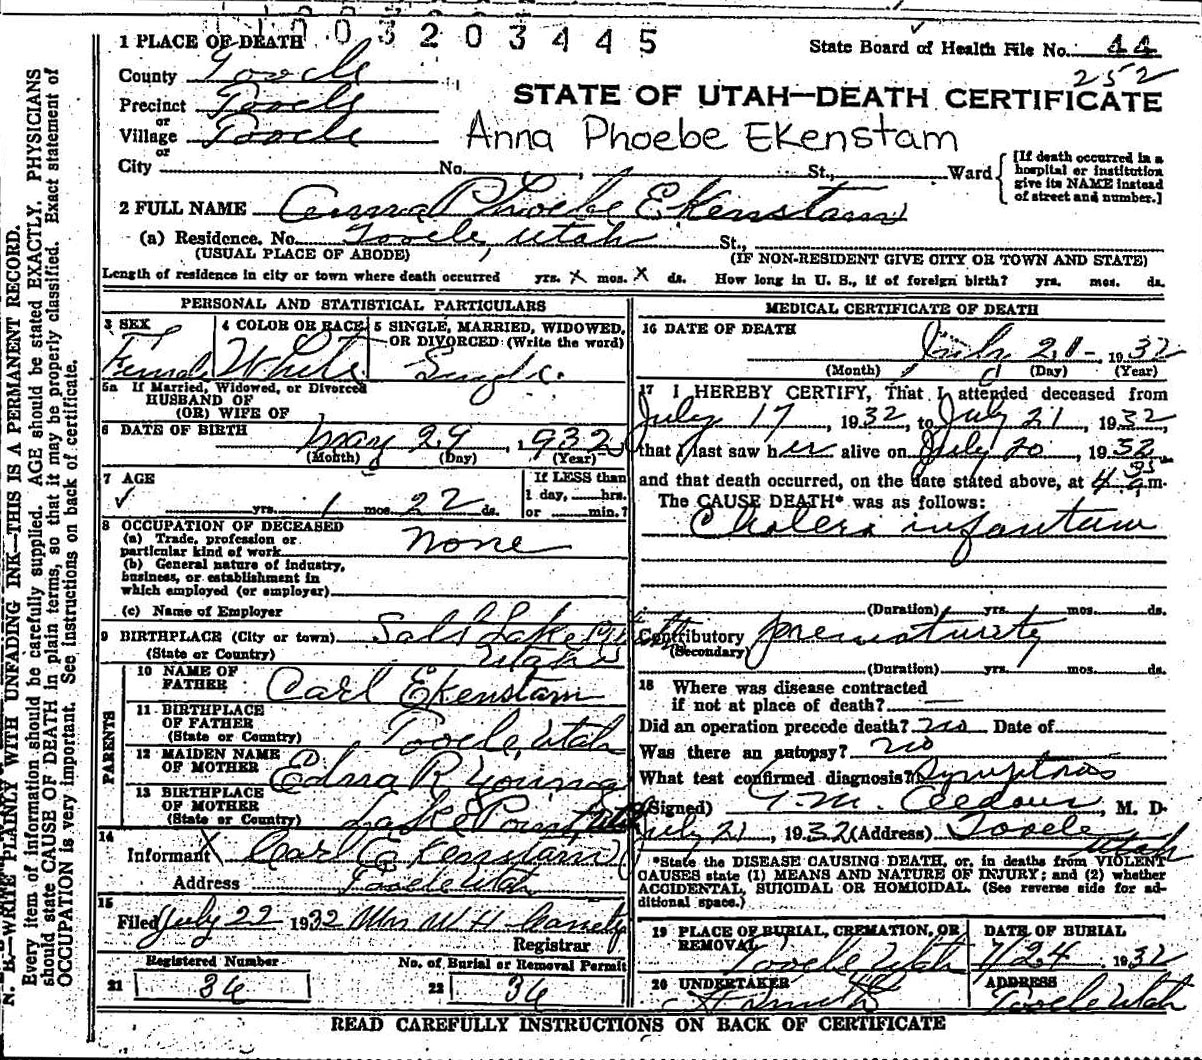 1 0 0 3 2 0 3 4 4 5
1 PLACE OF DEATH
State Board of Health File No. 44
County Tooele
252
Precinct Tooele
STATE OF UTAH—DEATH CERTIFICATE
or
Village Tooele
Anna Phoebe Ekenstam
or
City No. , St., Ward
[If death occurred in a hospital or institution give its NAME instead of street and number.]
2 FULL NAME Anna Phoebe Ekenstam
(a) Residence. No. Tooele, Utah St.,
(USUAL PLACE OF ABODE) (IF NON-RESIDENT GIVE CITY OR TOWN AND STATE)
Length of residence in city or town where death occurred yrs. X mos. X ds. How long in U. S., if of foreign birth? yrs. mos. ds.
PERSONAL AND STATISTICAL PARTICULARS
3 SEX 4 COLOR OR RACE 5 SINGLE, MARRIED, WIDOWED,
OR DIVORCED (Write the word)
Female White Single
5a If Married, Widowed, or Divorced
HUSBAND OF
(OR) WIFE OF
6 DATE OF BIRTH May 29, 1932
(Month) (Day) (Year)
7 AGE
If LESS than
1 day, hrs.
or min.?
yrs. 1 mos. 22 ds.
8 OCCUPATION OF DECEASED
(a) Trade, profession or
particular kind of work none
(b) General nature of industry,
business, or establishment in
which employed (or employer)
(c) Name of Employer
9 BIRTHPLACE (City or town) Salt Lake City
(State or Country) Utah
PARENTS
10 NAME OF
FATHER Carl Ekenstam
11 BIRTHPLACE
OF FATHER
(State or Country) Tooele, Utah
12 MAIDEN NAME
OF MOTHER Edna R Young
13 BIRTHPLACE
OF MOTHER
(State or Country) Lake Point, Utah
14
Informant X Carl Ekenstam
Address Tooele Utah
15
Filed July 22 1932 Mrs W H
Registrar
Registered Number No. of Burial or Removal Permit
21 36 22 36
MEDICAL CERTIFICATE OF DEATH
16 DATE OF DEATH
July 21- 1932
(Month) (Day) (Year)
17 I HEREBY CERTIFY, That I attended deceased from
July 17, 1932, to July 21, 1932,
that I last saw her alive on July 20, 1932
and that death occurred, on the date stated above, at 4 a.m.
The CAUSE DEATH* was as follows:
Cholera infantum
(Duration) yrs. mos. ds.
Contributory prematurity
(Secondary)
(Duration) yrs. mos. ds.
18 Where was disease contracted
if not at place of death? —
Did an operation precede death? no Date of
Was there an autopsy? no
What test confirmed diagnosis? Symptoms
(Signed) M. D.
July 21, 1932 (Address) Tooele
Utah
*State the DISEASE CAUSING DEATH, or, in deaths from VIOLENT
CAUSES state (1) MEANS AND NATURE OF INJURY; and (2) whether
ACCIDENTAL, SUICIDAL OR HOMICIDAL. (See reverse side for ad-
ditional space.)
19 PLACE OF BURIAL, CREMATION, OR
REMOVAL
DATE OF BURIAL
Tooele Utah 7/24 1932
20 UNDERTAKER ADDRESS
Tooele Utah
READ CAREFULLY INSTRUCTIONS ON BACK OF CERTIFICATE
N. B.—WRITE PLAINLY WITH UNFADING INK—THIS IS A PERMANENT RECORD.
Every item of information should be carefully supplied. AGE should be stated EXACTLY. PHYSICIANS
should state CAUSE OF DEATH in plain terms, so that it may be properly classified. Exact statement of
OCCUPATION is very important. See instructions on back of certificate.